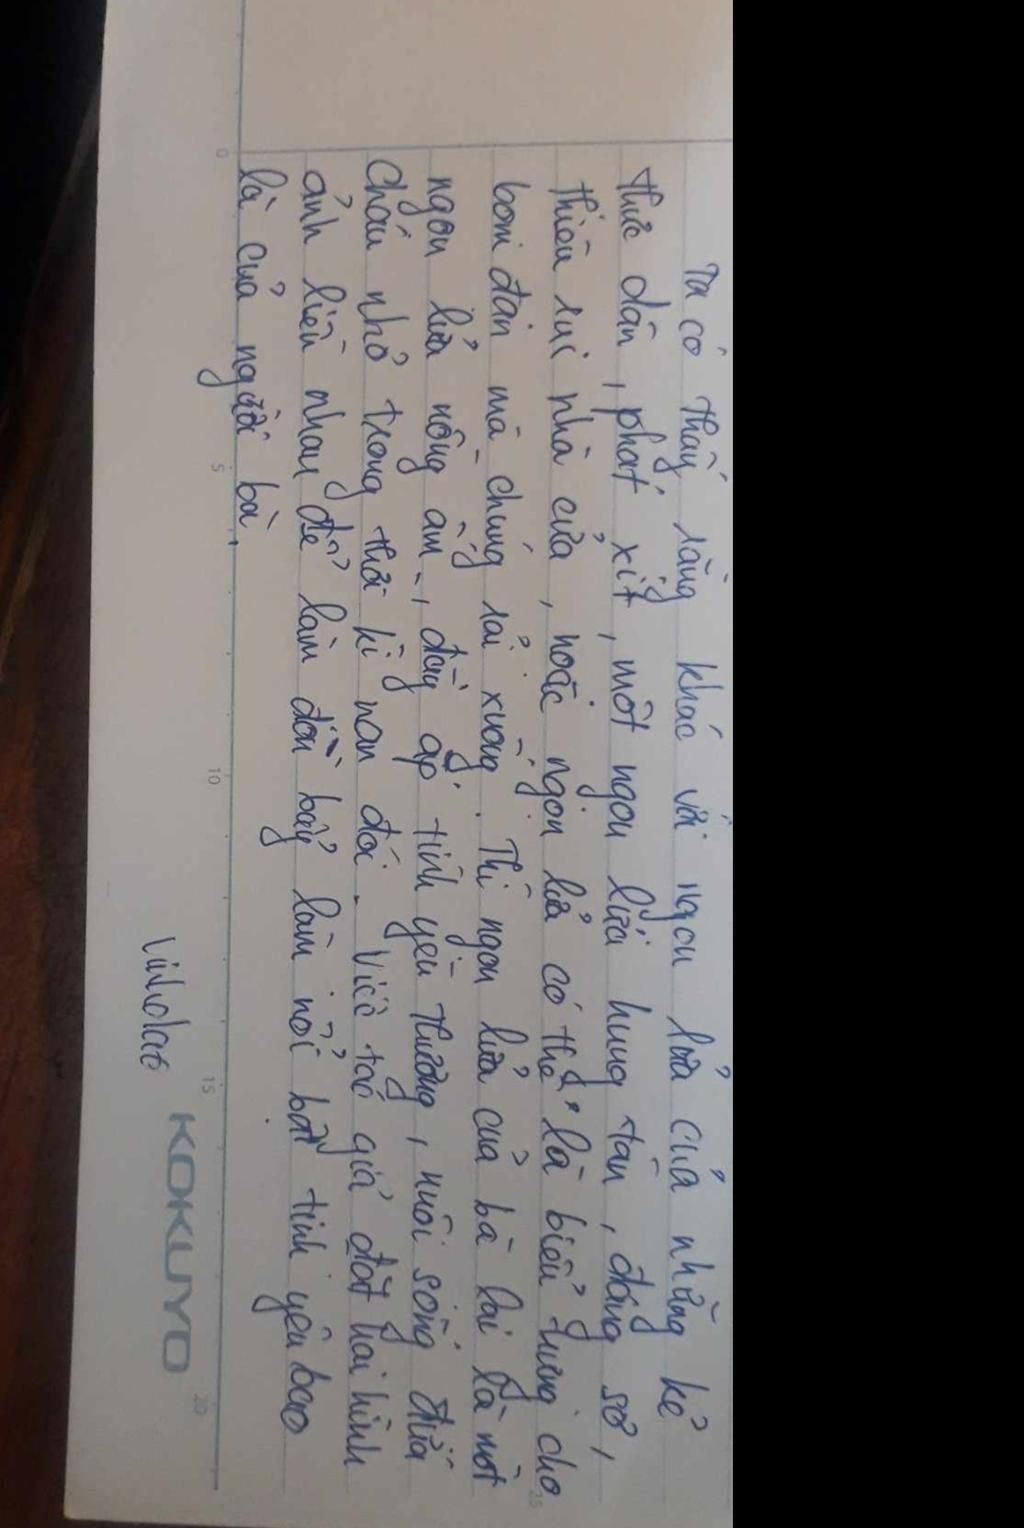 Ta có thấy rằng khác với ngọn lửa của những kẻ
thực dân, phát xít, một ngọn lửa hung tàn, đáng sợ,
thiêu rụi nhà cửa, hoặc ngọn lửa có thể là biểu tượng cho
bom đạn mà chúng rải xuống. Thì ngọn lửa của bà lại là một
ngọn lửa nồng ấm, đầy ắp tình yêu thương, nuôi sống đứa
cháu nhỏ trong thời kì nạn đói. Việc tác giả đặt hai hình
ảnh liền nhau để làm đòn bẩy làm nổi bật tình yêu bao
la của người bà.
0 5 10 15 20
25
KOKUYO